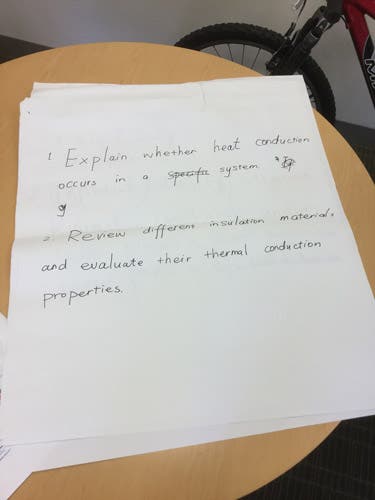 1 Explain whether heat conduction
occurs in a specific system
g
2 Review different insulation materials
and evaluate their thermal conduction
properties.